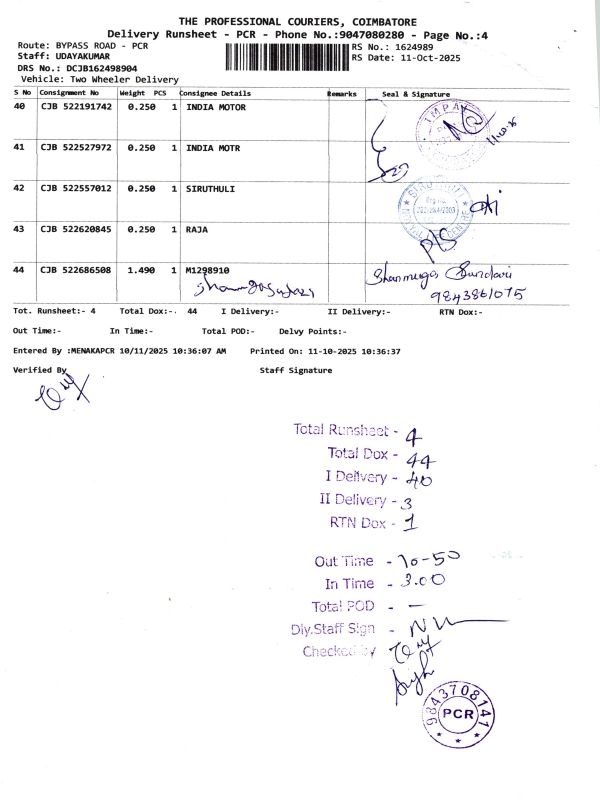 THE PROFESSIONAL COURIERS, COIMBATORE
Delivery Runsheet - PCR - Phone No.:9047080280 - Page No.:4
Route: BYPASS ROAD - PCR
RS No.: 1624989
Staff: UDAYAKUMAR
RS Date: 11-Oct-2025
DRS No.: DCJB162498904
Vehicle: Two Wheeler Delivery
S No Consignment No Weight PCS Consignee Details Remarks Seal & Signature
40 CJB 522191742 0.250 1 INDIA MOTOR
41 CJB 522527972 0.250 1 INDIA MOTR
42 CJB 522557012 0.250 1 SIRUTHULI
43 CJB 522620845 0.250 1 RAJA
44 CJB 522686508 1.490 1 M1298910
Shanmuga Sundari
9843861075
Tot. Runsheet:- 4 Total Dox:-. 44 I Delivery:- II Delivery:- RTN Dox:-
Out Time:- In Time:- Total POD:- Delvy Points:-
Entered By :MENAKAPCR 10/11/2025 10:36:07 AM Printed On: 11-10-2025 10:36:37
Verified By Staff Signature
Total Runsheet - 4
Total Dox - 44
I Delivery - 40
II Delivery - 3
RTN Dox - 1
Out Time - 10-50
In Time - 3.00
Total POD - —
Dly.Staff Sign -
Checked by
9843708141
PCR